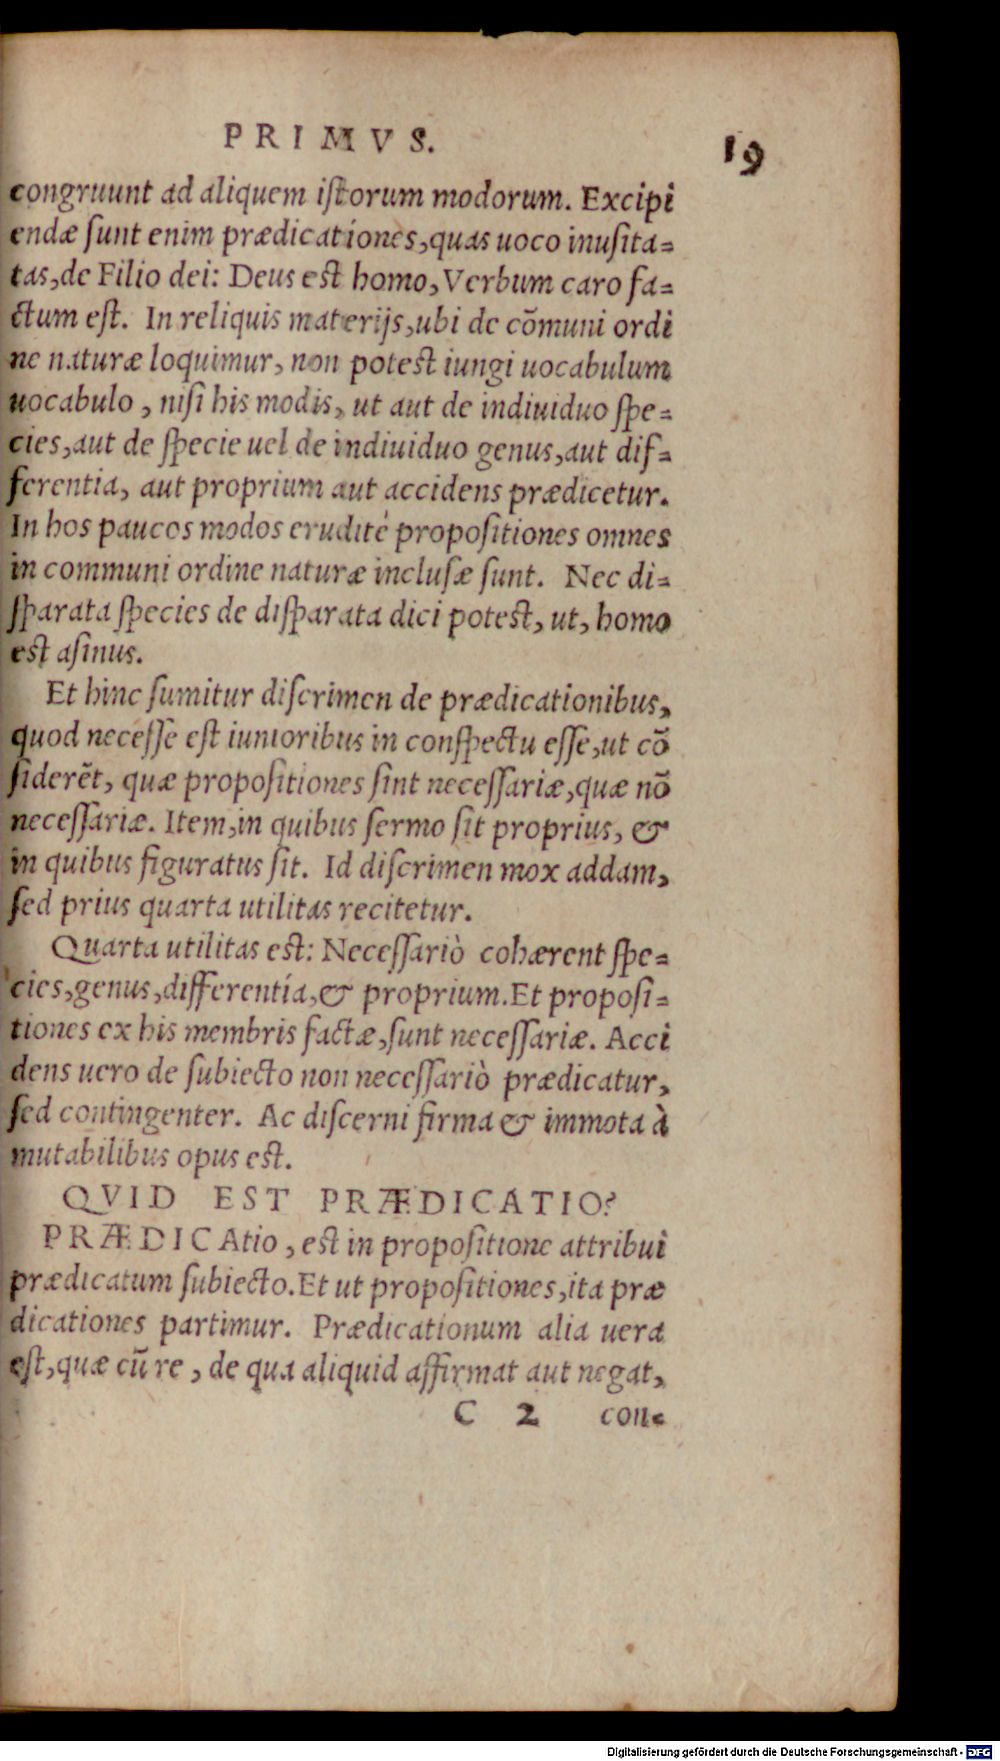 PRIMVS. 19
congruunt ad aliquem iſtorum modorum. Excipi
endæ ſunt enim prædicationes, quas uoco inuſita=
tas, de Filio dei: Deus est homo, Verbum caro fa=
ctum eſt. In reliquis materijs, ubi de cōmuni ordi
ne naturæ loquimur, non potest iungi uocabulum
uocabulo, niſi his modis, ut aut de indiuiduo ſpe=
cies, aut de ſpecie uel de indiuiduo genus, aut dif=
ferentia, aut proprium aut accidens prædicetur.
In hos paucos modos erudité propoſitiones omnes
in communi ordine naturæ incluſæ ſunt. Nec di=
ſparata ſpecies de diſparata dici potest, ut, homo
est aſinus.
Et hinc ſumitur diſcrimen de prædicationibus,
quod neceſſe eſt iunioribus in conſpectu eſſe, ut cō
ſiderēt, quæ propoſitiones ſint neceſſariæ, quæ nō
neceſſariæ. Item, in quibus ſermo ſit proprius, &
in quibus figuratus ſit. Id diſcrimen mox addam,
ſed prius quarta utilitas recitetur.
Quarta utilitas est: Neceſſariò cohærent ſpe=
cies, genus, differentía, & proprium. Et propoſi=
tiones ex his membris factæ, ſunt neceſſariæ. Acci
dens uero de ſubiecto non neceſſariò prædicatur,
ſed contingenter. Ac diſcerni firma & immota à
mutabilibus opus est.
QVID EST PRÆDICATIO?
PRÆDICAtio, est in propoſitione attribui
prædicatum ſubiecto. Et ut propoſitiones, ita præ
dicationes partimur. Prædicationum alia uera
eſt, quæ cū re, de qua aliquid affirmat aut negat,
C 2 con=
Digitalisierung gefördert durch die Deutsche Forschungsgemeinschaft - DFG